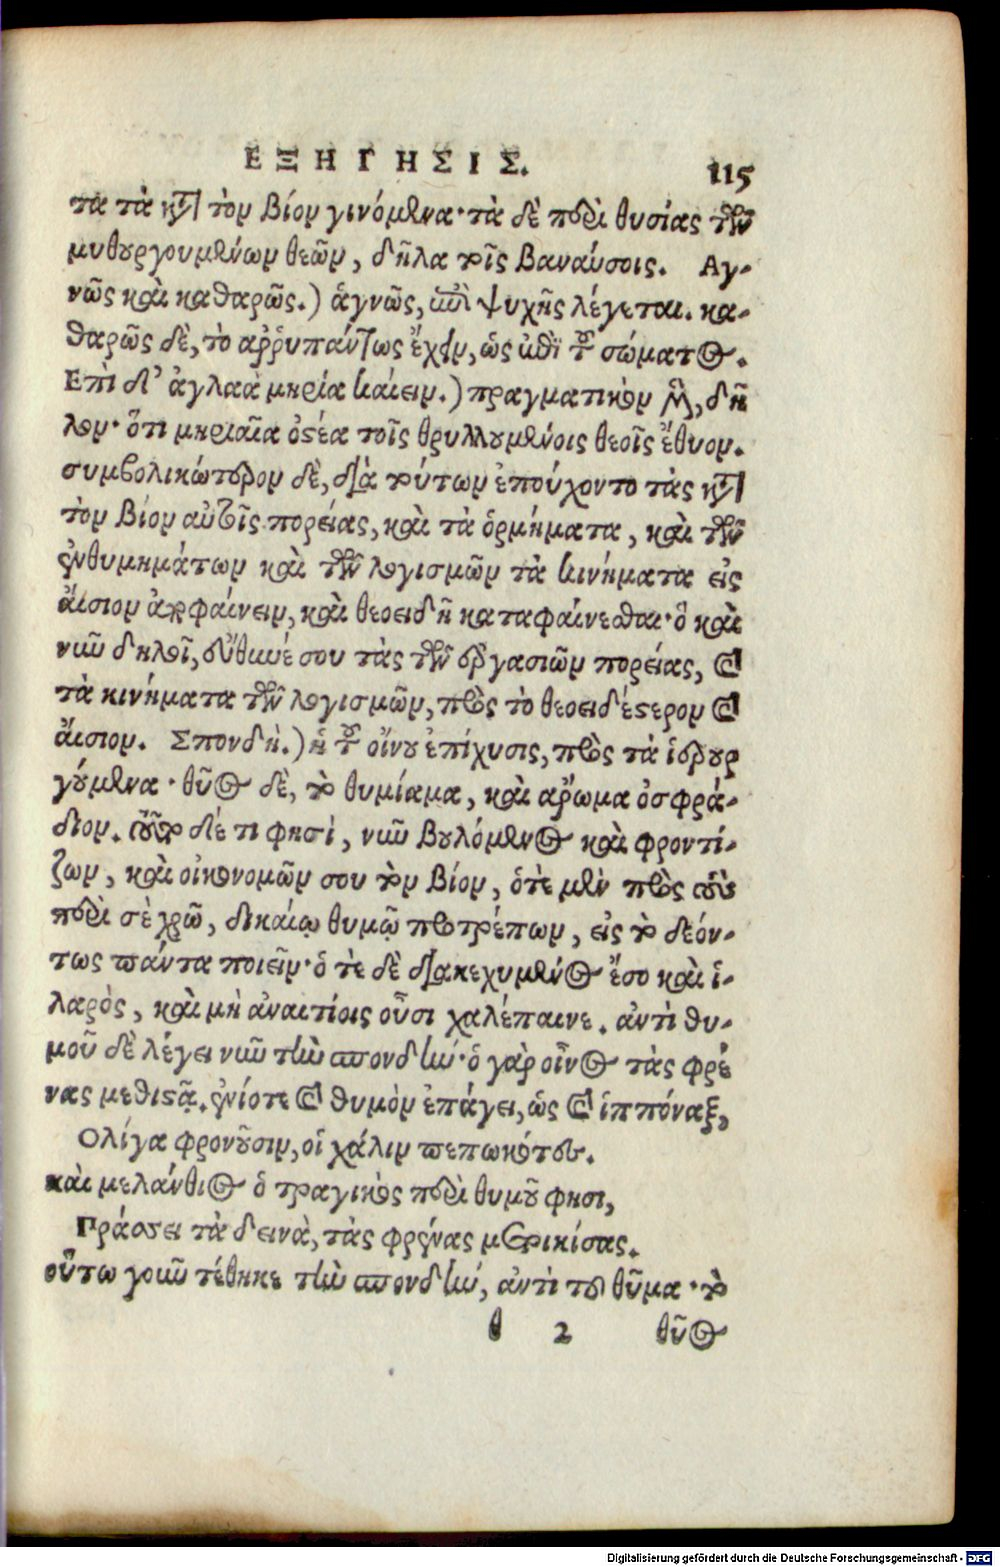 ΕΞΗΓΗΣΙΣ. 115
τα τὰ κτ̀ τὸν βίον γινόμενα· τὰ δὲ περὶ θυσίας τῶν
μυθουργουμένων θεῶν, δῆλα τοῖς βαναύσοις. Αγ-
νῶς καὶ καθαρῶς.) ἁγνῶς, ἐπὶ ψυχῆς λέγεται. κα-
θαρῶς δὲ, τὸ ἀῤῥυπάντως ἔχειν, ὡς ἐπὶ τοῦ σώματος.
Επὶ δ' ἀγλαὰ μηρία καίειν.) πραγματικὸν μὲν, δῆ
λον· ὅτι μηριαῖα ὀστέα τοῖς θρυλλουμένοις θεοῖς ἔθυον.
συμβολικώτερον δὲ, διὰ τούτων ἐπεύχοντο τὰς κτ̀
τὸν βίον αὐτοῖς πορείας, καὶ τὰ ὁρμήματα, καὶ τῶν
ἐνθυμημάτων καὶ τῶν λογισμῶν τὰ κινήματα εἰς
αἴσιον ἀποφαίνειν, καὶ θεοειδῆ καταφαίνεσθαι· ὃ καὶ
νῦν δηλοῖ, εὔθυνέ σου τὰς τῶν ἐργασιῶν πορείας, καὶ
τὰ κινήματα τῶν λογισμῶν, πρὸς τὸ θεοειδέστερον καὶ
αἴσιον. Σπονδή.) ἡ τοῦ οἴνου ἐπίχυσις, πρὸς τὰ ἱερουρ
γούμενα· θῦος δὲ, τὸ θυμίαμα, καὶ ἄρωμα ὀσφρά-
διον. τοῦτο δέ τι φησί, νῦν βουλόμενος καὶ φροντί-
ζων, καὶ οἰκονομῶν σου τὸν βίον, ὁτὲ μὲν πρὸς τοὺς
περὶ σὲ χρῶ, δικαίῳ θυμῷ προτρέπων, εἰς τὸ δεόν-
τως πάντα ποιεῖν· ὁ τὲ δὲ διακεχυμένος ἔσο καὶ ἱ-
λαρὸς, καὶ μὴ ἀναιτίοις οὖσι χαλέπαινε. ἀντὶ θυ-
μοῦ δὲ λέγει νῦν τὴν σπονδήν· ὁ γὰρ οἶνος τὰς φρέ
νας μεθιστᾷ. ἐνίοτε καὶ θυμὸν ἐπάγει, ὡς καὶ ἱππόναξ,
Ολίγα φρονοῦσιν, οἱ χάλιν πεπωκότες.
καὶ μελάνθιος ὁ τραγικὸς περὶ θυμοῦ φησι,
Πράσσει τὰ δεινὰ, τὰς φρένας μετοικίσας.
οὕτω γοῦν τέθηκε τὴν σπονδήν, ἀντὶ τοῦ θῦμα· τὸ
θ 2 θῦος
Digitalisierung gefördert durch die Deutsche Forschungsgemeinschaft - DFG